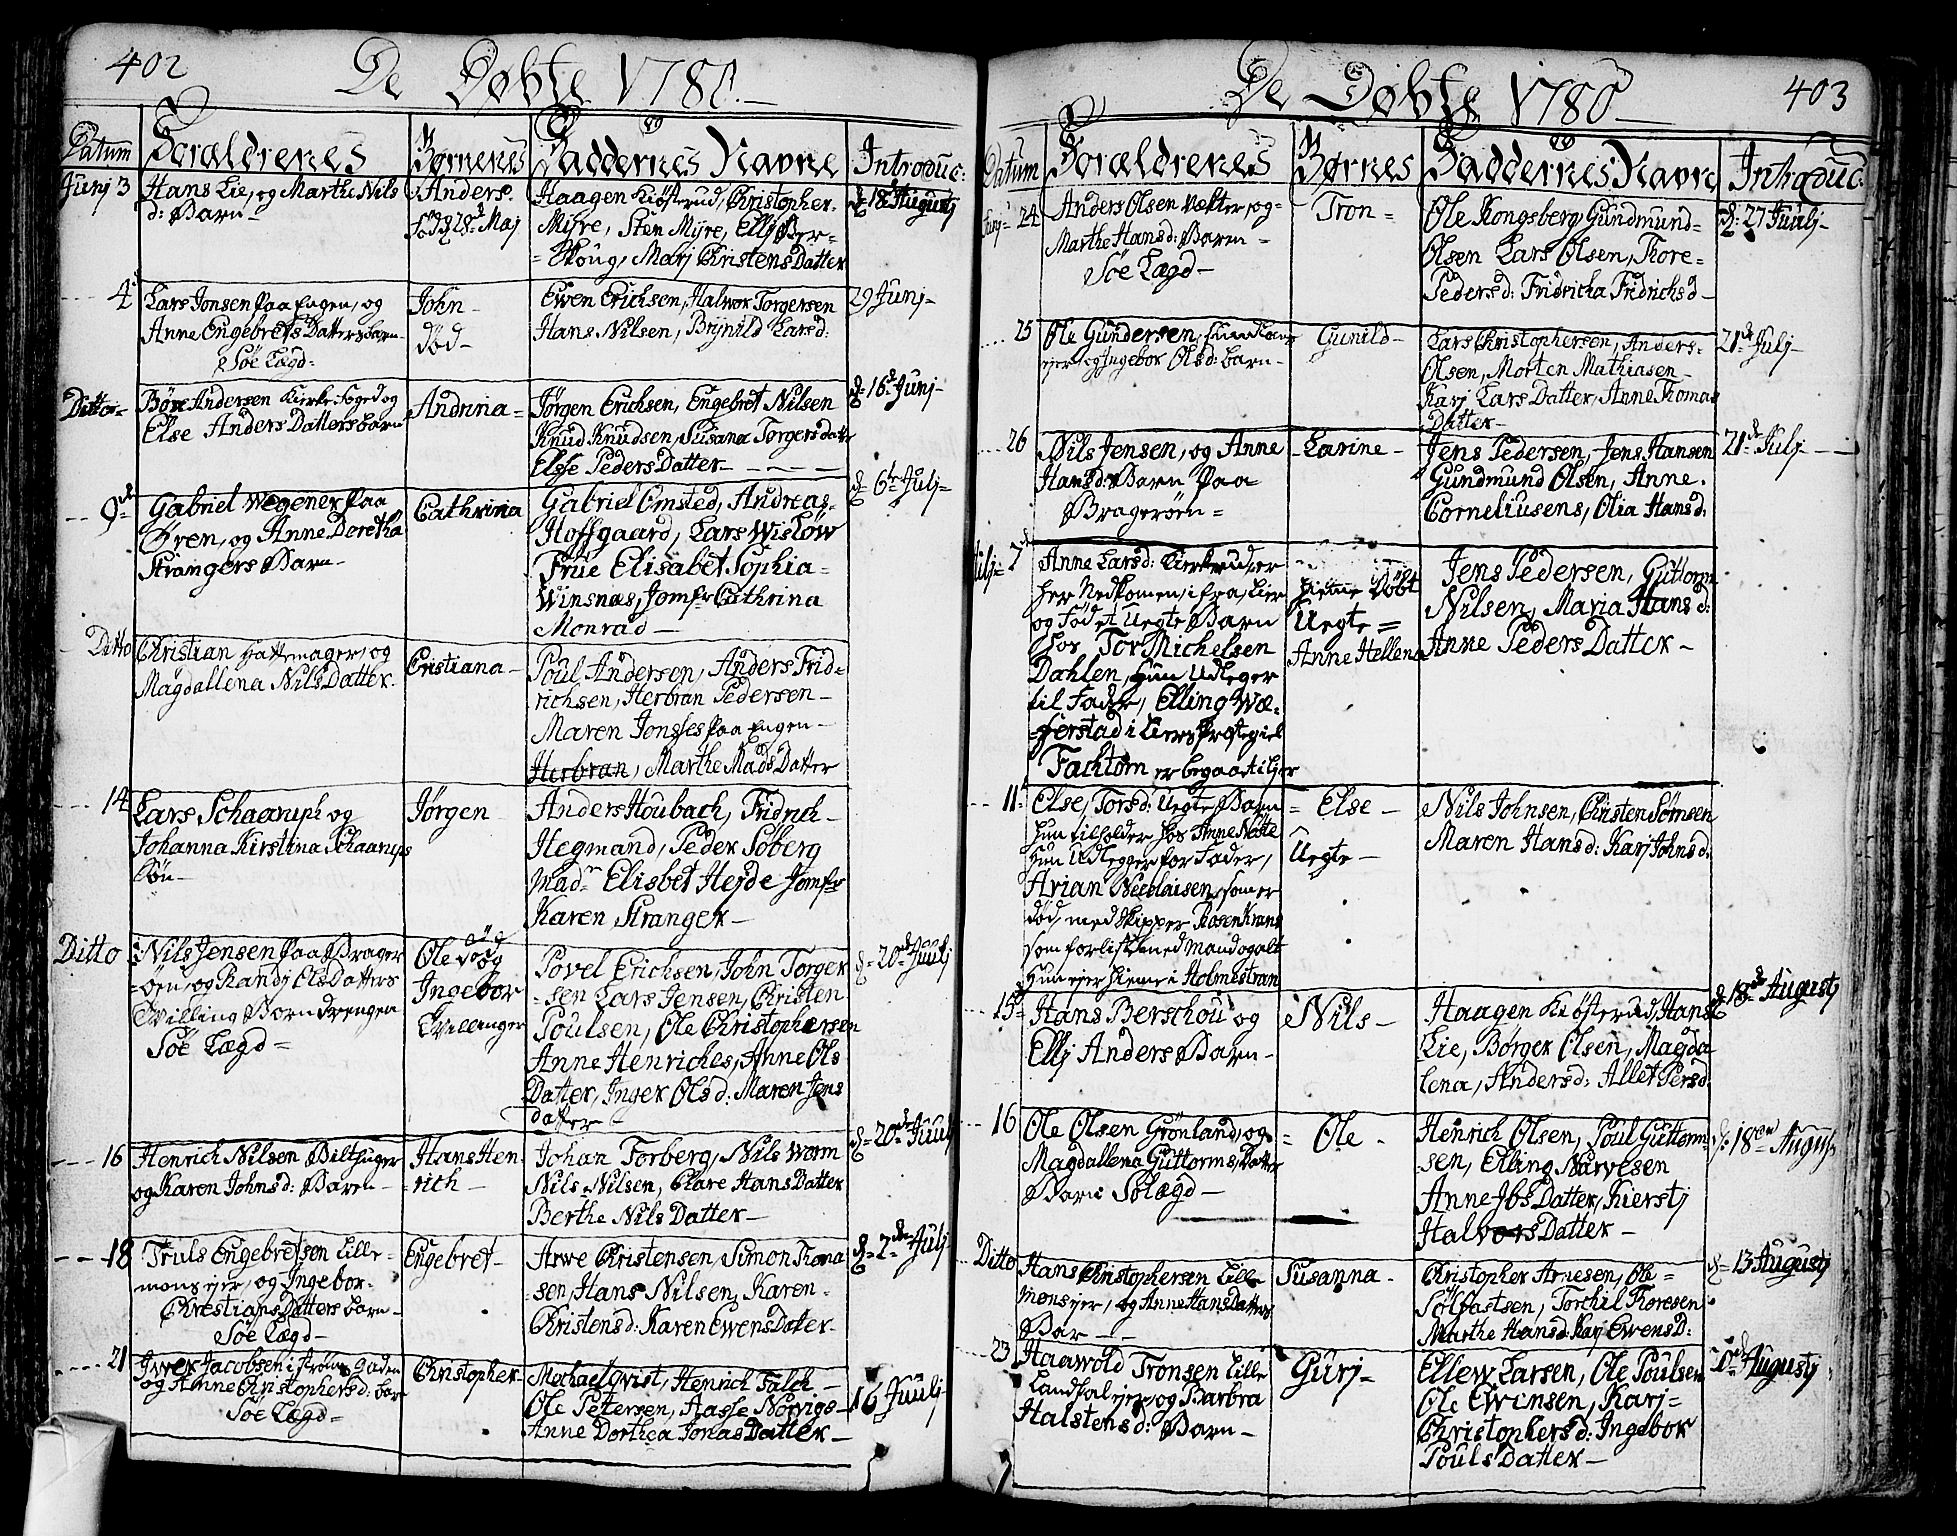 402
De Døbte 1780
Datum
Forældrenes
Børnenes
Faddernes Navne
Introduc:
Junj 3
Hans Lie, og Marthe Nils
d: Barn
Anders
fød d 28d Maj
Haagen Kiøsterud, Christopher
Myre, Sten Myre, Ellj Ber-
=Skoug, Marj Christens Datter
d: 18 Augustj
4d
Lars Jonsen paa Engen, og
Anne Engebrets Datters barn
Søe Lægd=
John
død
Ewen Erichsen, Halwor Torgersen
Hans Nilsen, Brynild Larsd:
29 Junj
Ditto=
Børe Andersen Kierke foged og
Else Anders Datters barn
Andrina=
Jørgen Erichsen, Engebret Nilsen
Knud Knudsen, Susana Torgersdatter
Elsse Peders Datter
d: 16d Junj
9d
Gabriel Wegener paa
Øren, og Anne Doretha
Strangers Barn
Cathrina
Gabriel Omsted, Andreas
Hoffgaard, Lars Wisløw
Frue Elisabet Sophia=
Winsnæs, Jomfr Cathrina
Monrad
d= 6te Julj=
Ditto
Christian Hattemager, og
Magdallena Nils Datter
Cristiana
Poul Andersen, Anders Frid=
richsen, Herbran Pedersen
Maren Jonsses paa Engen
Herbran, Marthe Mads Datter
14
Lars Schaarup og
Johanna Kirstina Schaarups
Søn
Jørgen
Anders Houbach, Fridrich
Hegmand, Peder Soberg
Madr Elisbet Hejde Jomfr
Karen Stranger
Ditto
Nils Jensen paa Brager
=øen, og Randj Els Datters
Tvilling Børn drengen
Søe Lægd=
Ole død
og
Ingebor
Tvillinger
Povel Erichsen, John Torger
=sen Lars Jensen, Christen
Poulsen, Ole Christophersen
Anne Henriches, Anne Ols
Datter, Inger Olsd: Maren Jens
datter
d= 20de Juulj
16
Henrich Nilsen Bilthuger
og Karen Johnsd: Baren
Hans Hen
=rich
Johan Forberg, Nils Worm
Nils Nilsen, Clare Hans Datter
Berthe Nils Datter
d= 20de Juulj
18
Truls Engebretsen Lille
mons ejer, og Ingebor
Christians Datters barn
Søe Lægd
Engebret
Arwe Christensen, Simon Thoma
=sen, Hans Nilsen, Karen
Christensd: Karen Ewens Datter
d= 2den Julj
21
Iwer Jacobsen i Strøms Gaden
og Anne Christophersd: bar
Søe Lægd=
Christopher
Michael Qvist, Henrich Falch
Ole Petersen, Aasse Norvigs
Anne Dorthea Jonas Datter
16 Juulj
De Døbte 1780
403
Datum
Forældrenes
Børnes
Faddernes Navne
Introduc:
Junj= 24
Anders Olsen Vekter, og=
Marthe Hansd: Baren
Søe Lægd
Tron=
Ole Kongsberg Gundmund=
Olsen Lars Olsen, Thore=
Pedersd: Fridricha Fridrichsd
d: 27 Juulj
25
Ole Gundersen,
ejer og Ingebor Olsd: barn
Gunild
Lars Christophersen, Anders
Olsen, Morten Mathiasen
Karj Lars Datter, Anne Thomas
Datter
21de Julj
26
Nils Jensen, og Anne
Hansd: Barn paa
Bragerøen=
Larine
Jens Pedersen, Jens Hansen
Gundmund Olsen, Anne
Corneliusens, Olia Hansd:
21de Julj
Julj= 7d
Anne Larsd: Kierkerud, er
her Nedkomen, ifra, Lier
og Fød et Uegte Barn
hos, Tor Michelsen
Dahlen, Hun Udleger
til Fader, Elling Wæ=
=ferstad i Liers Prestegiel
Fachtom er begaat i Ljer
Hieme Døbt
Uegte=
Anne Hellena
Jens Pedersen, Guttorm
Nilsen, Maria Hansd:
Anne Peders Datter
11
Else, Torsd: Uegte Barn
Hun tilholder hos Anne Nøtte
Hun Udlegger for Fader,
Arian Nicolaisen, som er
død, med Skipper Rosenkrans
som forlist med Mand og alt
Hun ejer hieme i Holmestran
=Else
Uegte
Nils Johnsen, Christen Simsen
Maren Hansd: Karj Johnsd:
15d
Hans Berschou og
Ellj Anders Barn
Nils
Haagen Kiøsterud, Hans
Lie, Børger Olsen, Magda
lena, Andersd: Allet Persd:
d 18de Augustj
16
Ole Olsen Grønland, og
Magdallena Guttorms, Datter
Barn Søe Lægd
=Ole
Henrich Olsen, Poul Guttorm
sen, Elling Narvesen
Anne Jbs Datter, Kierstj
Halvors Datter
d: 18en August
Ditto
Hans Christophersen Lille
Monsejer, og Anne Hans Datters
Bar
Susanna
Christopher Arnesen, Ole=
Sølfastsen, Torchil Thoresen
Marthe Hansd: Karj Ewens D:
d= 13 Augustj
23
Haawold Tronsen Lille
Landfal ejer, og Barbra
Halstensd: Barn
Gurj=
Ellew Larsen, Ole Poulsen
Ole Ewensen, Karj=
Christophersd: Ingebor
Pouls Datter
Augustj